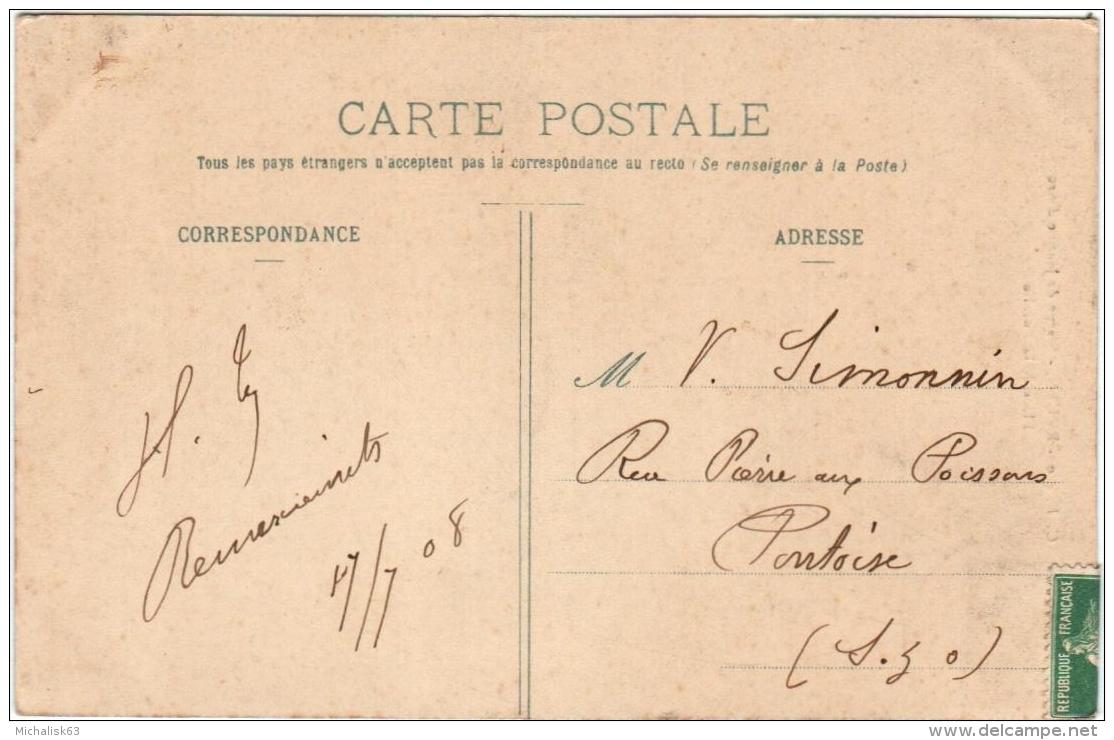 CARTE POSTALE
Tous les pays étrangers n'acceptent pas la correspondance au recto (Se renseigner à la Poste)
CORRESPONDANCE
ADRESSE
Remerciements
17/7 08
M V. Simonnin
Rue Pierre aux Poissons
Pontoise
(S. & O)
REPUBLIQUE FRANÇAISE
Michalisk63
delcampe.net